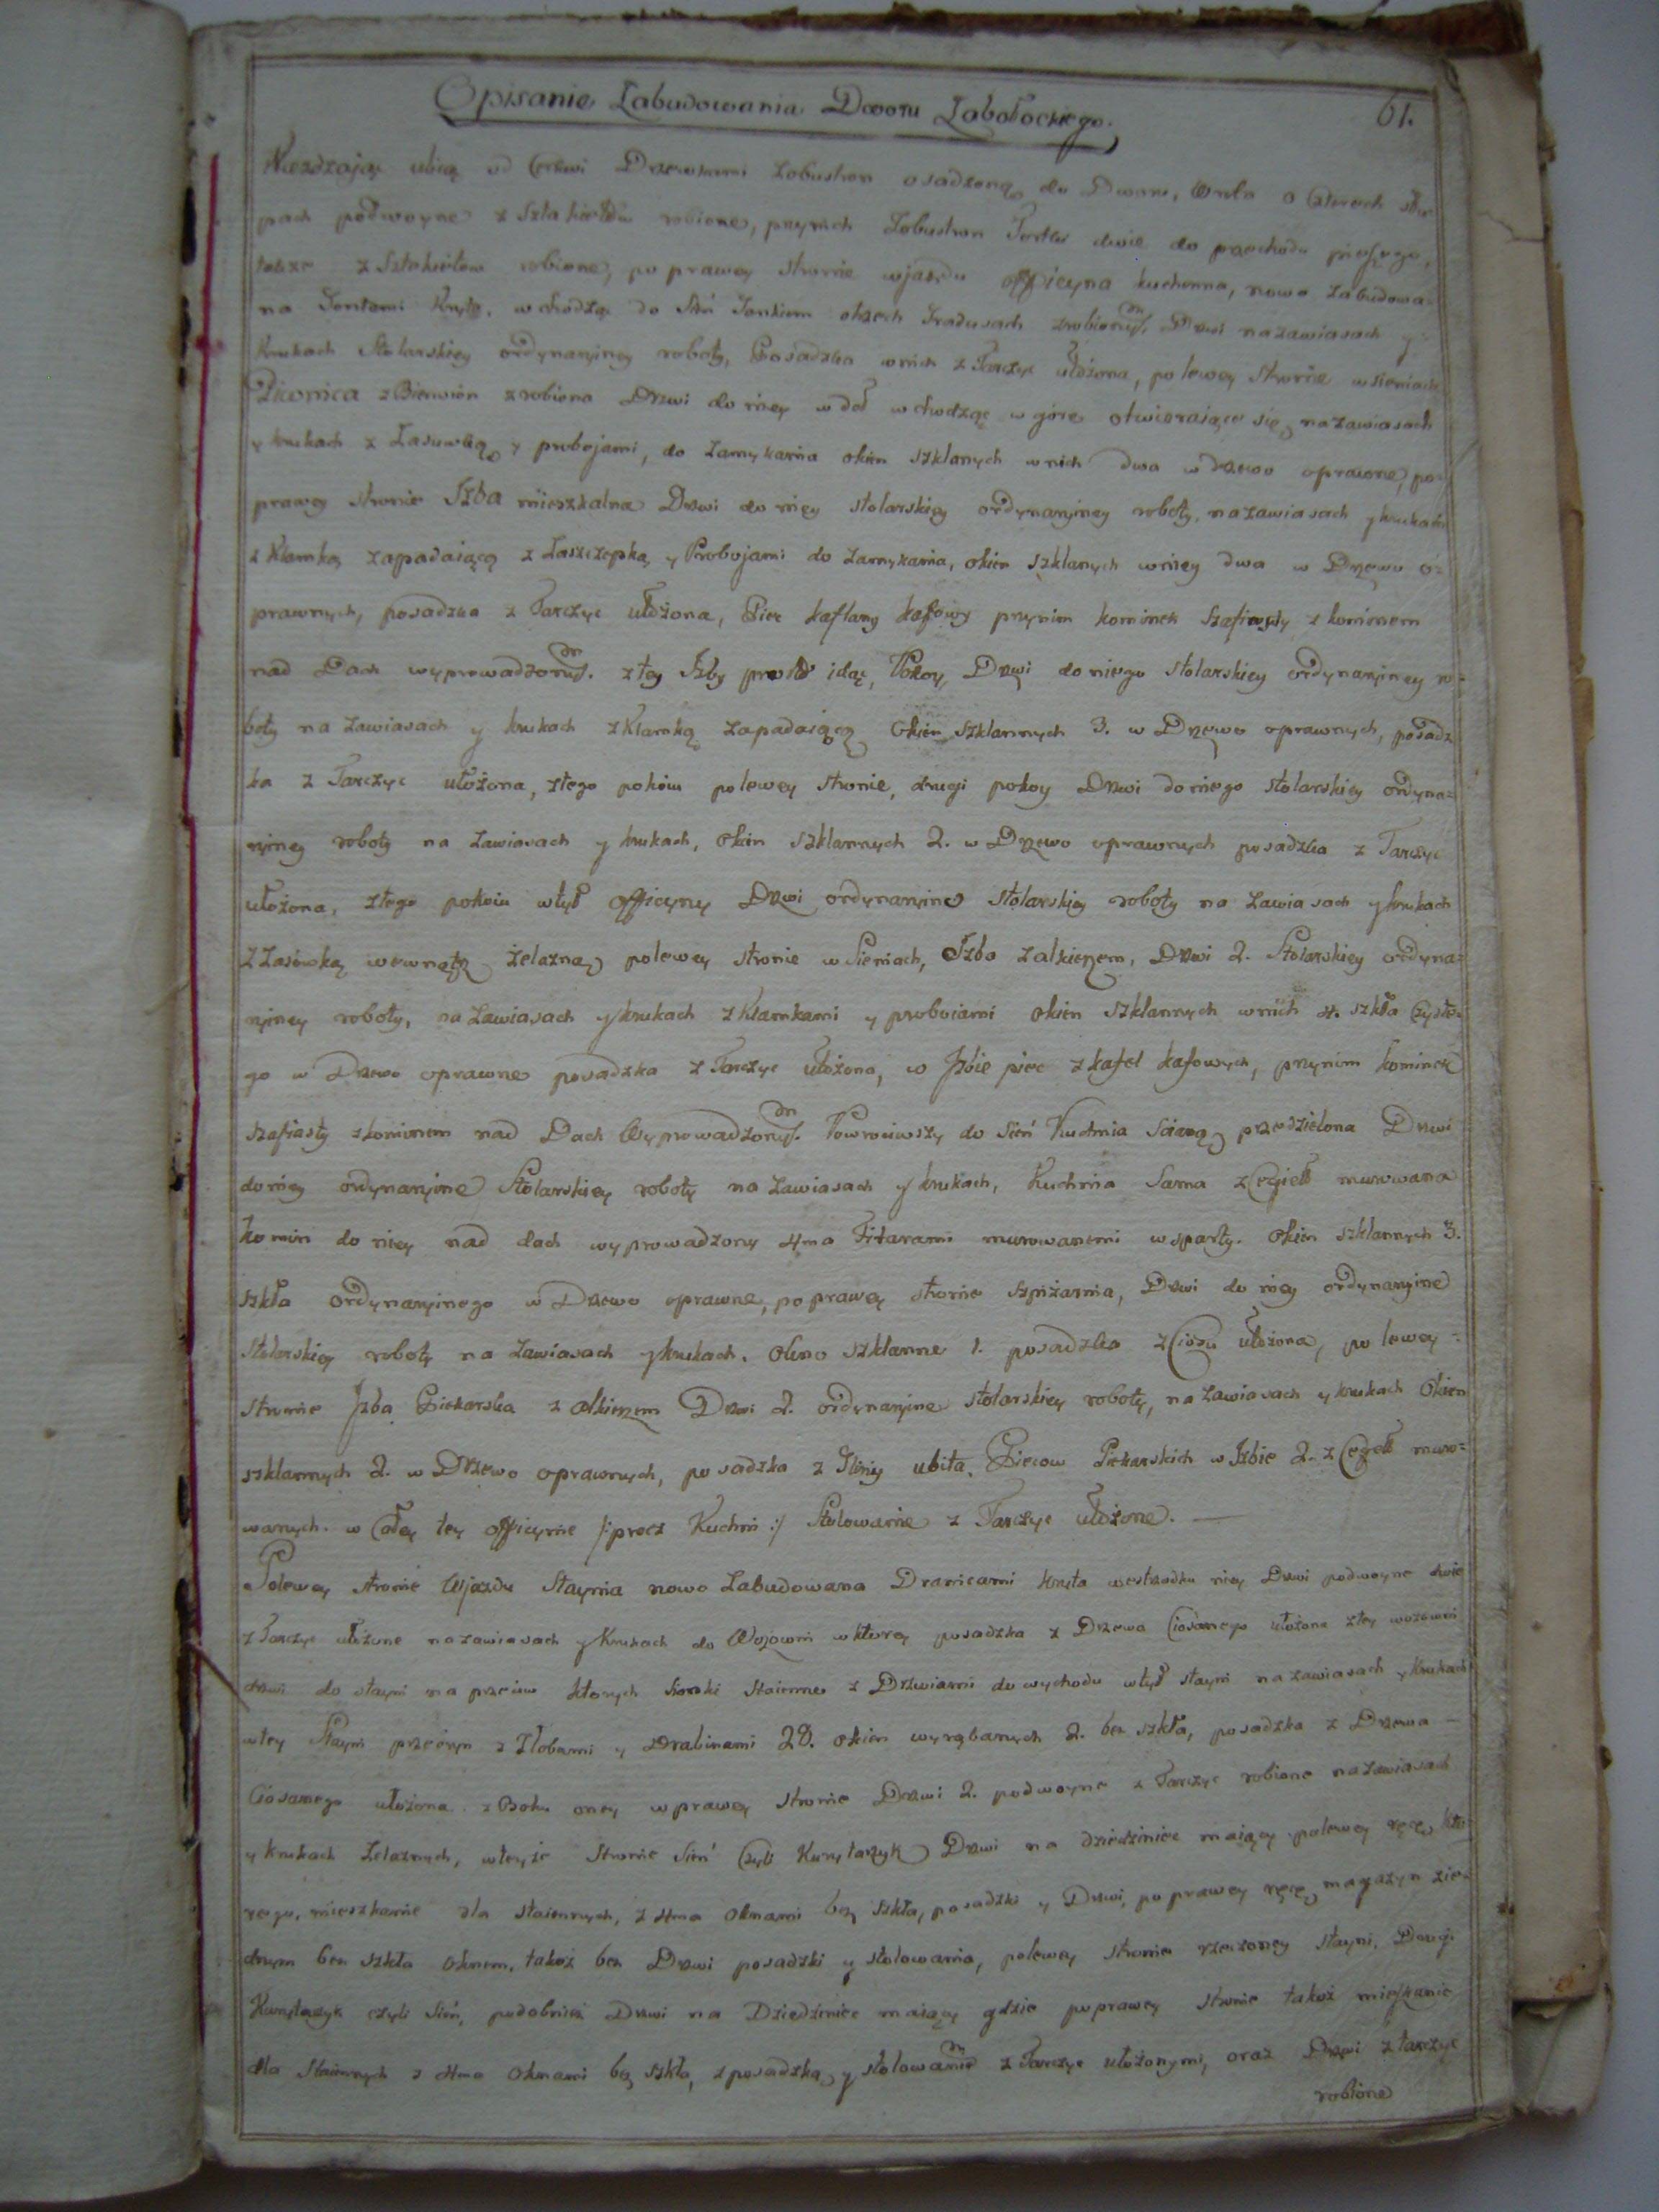 Opisanie Zabudowania Dworu Zabołockiego.
61.
Wiezdzaiąc ulicą od Cerkwi Drzewkami zobustron osadzoną do Dworu, Wrota o Czterech słu=
pach podwoyne z Sztakietów robione, przynich Zobustron Fortki dwie do przechodu pieszego,
także z Sztakietow robione, po prawey stronie wjazdu officyna kuchenna, nowo Zabudowa=
na Gontami Kryta, wchodząc do Sień Gankiem otrzech Gradusach zrobionym. Drzwi nazawiasach y
Krukach Stolarskiey ordynaryiney roboty, Posadzka wnich z Tarczyc ułożona, po lewey stronie wsieniach
Piwnica z Bierwion zrobiona Drzwi do niey w doł wchodząc w górę otwieraiące się, nazawiasach
y krukach z Zasuwką y probojami, do zamykania okien szklanych wnich dwa w Drzewo oprawne, po=
prawey stronie Izba mieszkalna Drzwi do niey stolarskiey ordynaryiney roboty, nazawiasach ykrukach
z Klamką zapadaiącą z Zaszczepką y Probojami do zamykania, okien szklanych wniey dwa w Drzewo o=
prawnych, posadzka z Tarczyc ułożona, Piec kaflany kafowy przynim kominek Szafiasty z kominem
nad Dach wyprowadzonym. ztey Izby prosto idąc, Pokoy, Drzwi doniego stolarskiey ordynaryiney ro=
boty na zawiasach y krukach zKlamką zapadaiącą Okien szklannych 3. w Drzewo oprawnych, posadz
ka z Tarczyc ułożona, ztego pokoiu polewey stronie, drugi pokoy Drzwi doniego stolarskiey ordyna=
ryiney roboty na zawiasach y krukach, okien szklannych 2. w Drzewo oprawnych posadzka z Tarczyc
ułożona, ztego pokoiu wtył officyny Drzwi ordynaryine stolarskiey roboty na zawiasach ykrukach
zZasówką wewnątrz żelazną polewey stronie w Sieniach, Izba zalkierzem, Drzwi 2. Stolarskiey ordyna=
ryiney roboty, na zawiasach ykrukach zKlamkami y proboiami okien szklannych wnich 4. szkła Czyste=
go w Drzewo oprawne posadzka z Tarczyc ułożona, w Izbie piec z kafel kafowych, przynim kominek
szafiasty zkominem nad Dach Wyprowadzonym. Powrociwszy do Sień Kuchnia Scianą przedzielona Drzwi
doniey ordynaryine Stolarskiey roboty na zawiasach y krukach, Kuchnia Sama zCegieł murowana
komin do niey nad dach wyprowadzony 4ma Filarami murowanemi wsparty. Okien szklannych 3.
szkła ordynaryinego w Drzewo oprawne, poprawey stronie szpiżarnia, Drzwi do niey ordynaryine
Stolarskiey roboty na zawiasach ykrukach. Okno szklanne 1. posadzka zCiosu ułożona, po lewey =
stronie Izba Piekarska z alkierzem Drzwi 2. ordynaryine stolarskiey roboty, na zawiasach y krukach Okien
szklannych 2. w Drzewo oprawnych, posadzka z Gliny ubita, Piecow Piekarskich w Izbie 2. z Cegieł muro=
wanych. w Całey tey officynie /: procz Kuchni :/ Stolowanie z Tarczyc ułożone. —
Polewey stronie Wjazdu Staynia nowo Zabudowana Dranicami kryta wesrzodku niey Drzwi podwoyne dwie
z Tarczyc ułożone nazawiasach y Krukach do Wozowni wktorey posadzka z Drzewa Ciosanego ułożona ztey wozowni
drzwi do stayni na przeciw ktorych Sionki Staienne z Drzwiami do wychodu wtył stayni nazawiasach y Krukach
wtey Stayni z Złobami y Drabinami 28. okien wyrąbanych 2. bez szkła, posadzka z Drzewa —
Ciosanego ułożona. z Boku oney wprawey stronie Drzwi 2. podwoyne z Tarczyc robione nazawiasach
y krukach żelaznych, wteyże Stronie Sień Czyli Kurytarzyk Drzwi na dziedziniec maiący polewey ręce, kto=
rego, mieszkanie dla staiennych, z 4ma Oknami bez szkła, posadzki y Drzwi, po prawey ręcę magazyn zie=
dnym bez szkła Oknem, takoż bez Drzwi posadzki y stolowania, polewey stronie rzeczoney stayni, Drugi
Kurytarzyk czyli Sień, podobnież Drzwi na Dziedziniec maiący gdzie poprawey stronie takoż mieszkanie
dla Staiennych z 4ma Oknami bez szkła, zposadzką y stolowaniem z Tarczyc ułożonymi, oraz Drzwi ztarczyc
robione